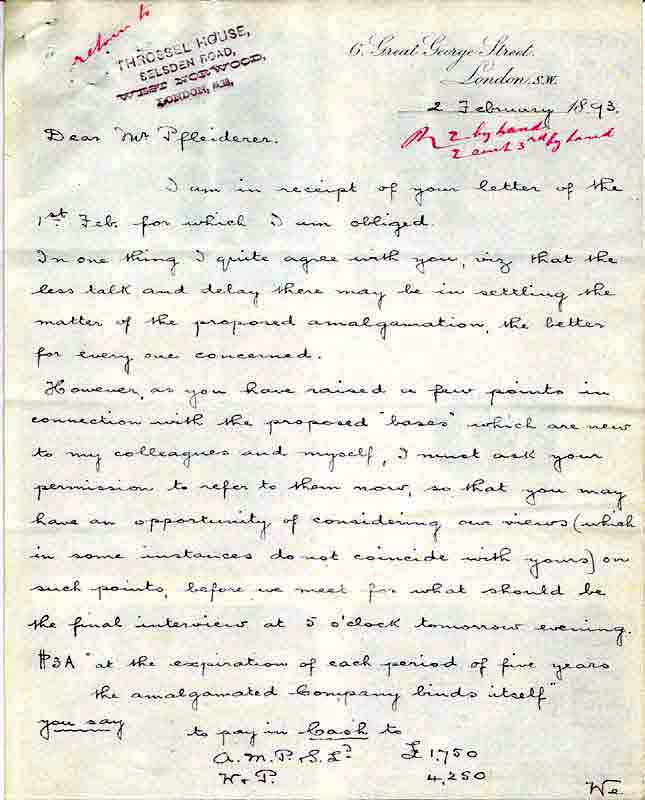 return to
THROSSEL HOUSE,
SELSDEN ROAD,
WEST NORWOOD,
LONDON, S.E.
6. Great George Street.
London. S.W.
2 February 1893.
2 by hand
2 3rd by hand
Dear Mr Pfleiderer.
I am in receipt of your letter of the
1st Feb. for which I am obliged.
In one thing I quite agree with you, viz that the
less talk and delay there may be in settling the
matter of the proposed amalgamation, the better
for every one concerned.
However, as you have raised a few points in
connection with the proposed "bases" which are new
to my colleagues and myself, I must ask your
permission to refer to them now, so that you may
have an opportunity of considering our views (which
in some instances do not coincide with yours) on
such points, before we meet for what should be
the final interview at 5 o'clock tomorrow evening.
#3A "at the expiration of each period of five years
the amalgamated Company binds itself"
you say
to pay in Cash to
A.M.P. & S. Ld £1.750
W & P. 4.250
We